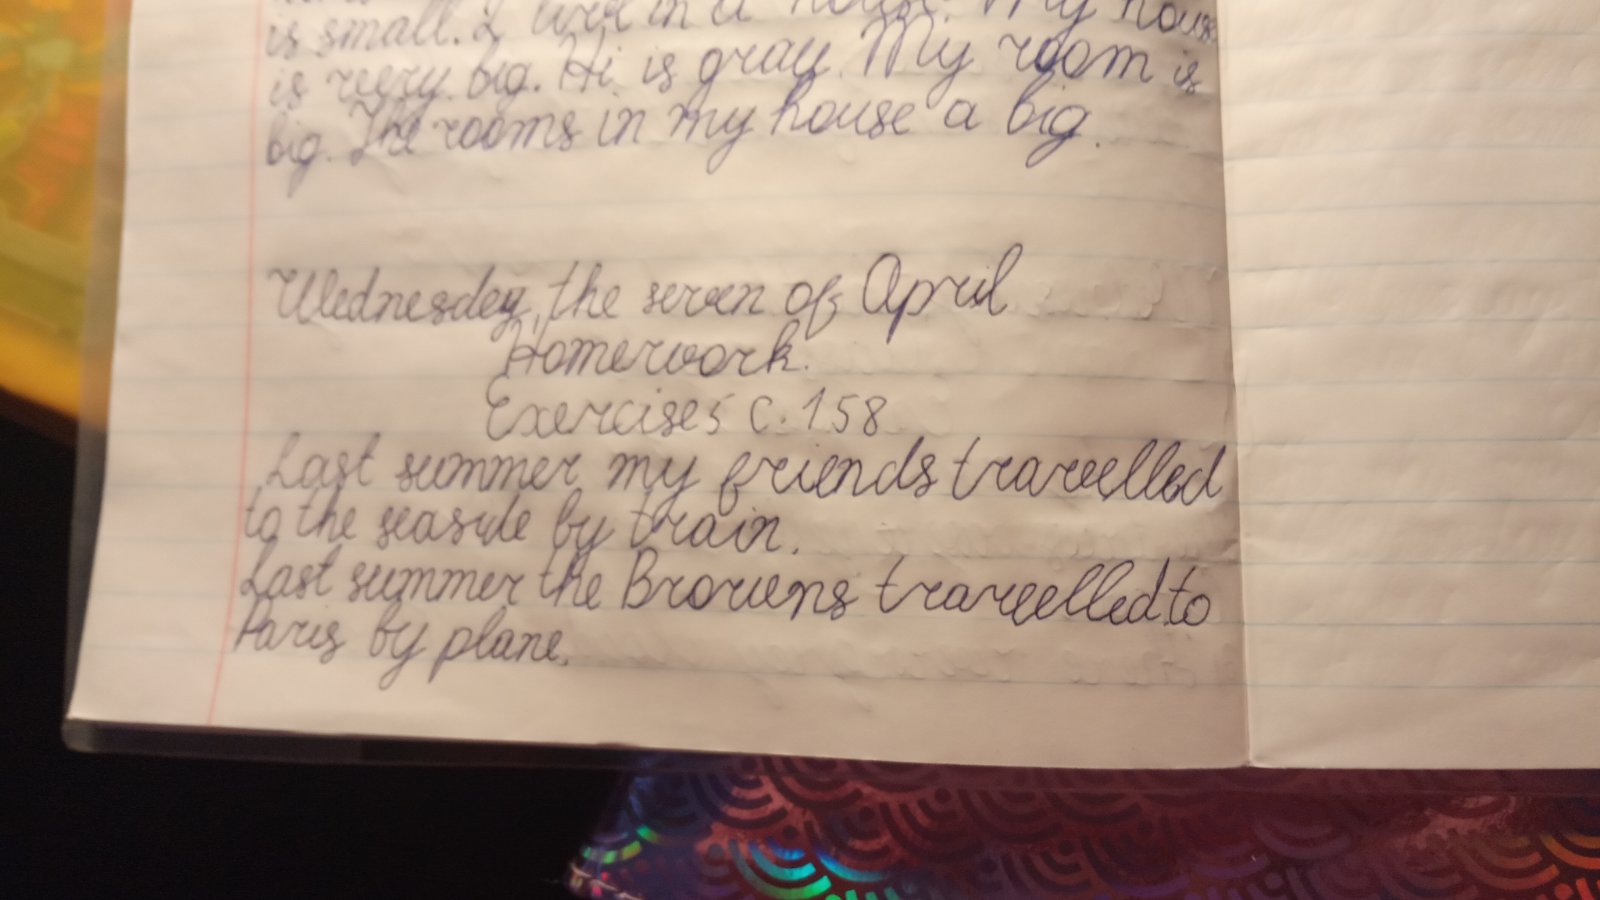 is small. I live in a house. My house
is very big. Hi is gray. My room is
big. The rooms in my house a big.
Wednesdey, the seven of April
Homework.
Exercises c. 158
Last summer my friends travelled
to the seaside by train.
Last summer the Browens travelled to
Paris by plane.